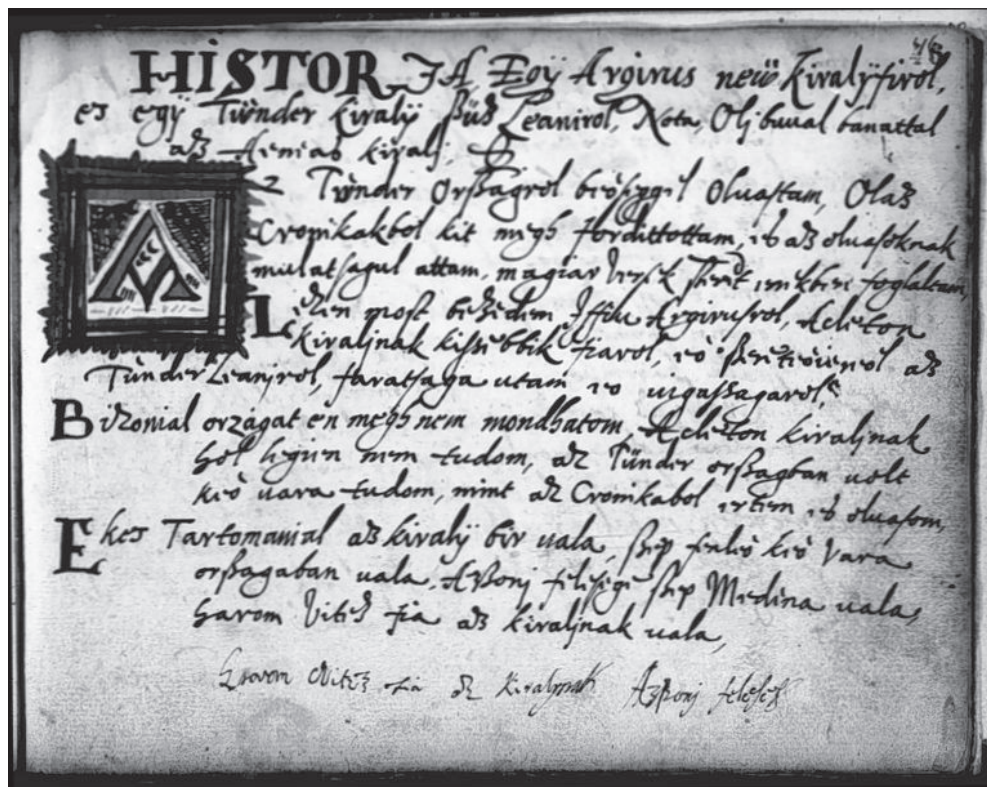 HISTORIA Egÿ Argirus neuü Kiralÿfirol,
es egÿ Tünder Kiralÿ ßüß Leanirol, Nota, Olj buual banattal
aß Aenias Kiralj.
AZ Tünder Orßagrol beoseggel Oluastam, Olaß
Cronikakbol kit megh fordittottam, es aß oluasoknak
mulatsagul attam, magiar versek ßerint foglaltam,
Leßen most beßedem Iffiu Argirusrol, Acleton
Kiraljnak kissebbik fiarol, eo ßereteoierol aß
Tünder Leanjrol, faratsaga utan eo uigaßagarol,
Bizonial orzagat en megh nem mondhatom, Acleton kiraljnak
hol legien nem tudom, az Tünder orßagban volt
keo uara tudom, mint az Cronikabol ertem es oluasom,
Ekes Tartomanial aß kiralÿ bir uala, ßep fenleo keo vara
orßagaban uala, Aßonj felesege ßep Medina uala,
harom Viteß fia aß kiraljnak uala,
Harom Vitez fia az Kiralynak Aßßonj felesege